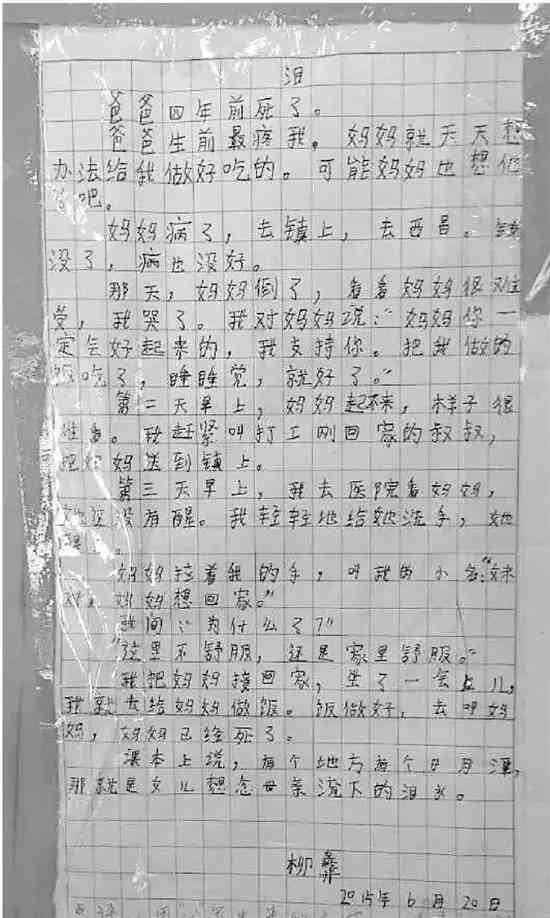 泪
爸爸四年前死了。
爸爸生前最疼我。妈妈就天天想
办法给我做好吃的。可能妈妈也想他
了吧。
妈妈病了，去镇上，去西昌。钱
没了，病也没好。
那天，妈妈倒了，看着妈妈很难
受，我哭了。我对妈妈说：“妈妈你一
定会好起来的，我支持你。把我做的
饭吃了，睡睡觉，就好了。”
第二天早上，妈妈起不来，样子很
难看。我赶紧叫打工刚回家的叔叔，
把妈妈送到镇上。
第三天早上，我去医院看妈妈，
她还没有醒。我轻轻地给她洗手，她
醒了。
妈妈拉着我的手，叫我的小名：“妹
妹，妈妈想回家。”
我问：“为什么了？”
“这里不舒服，还是家里舒服。”
我把妈妈接回家，坐了一会儿，
我就去给妈妈做饭。饭做好，去叫妈
妈，妈妈已经死了。
课本上说，有个地方有个日月潭，
那就是女儿想念母亲流下的泪水。
柳彝
2015年6月20日